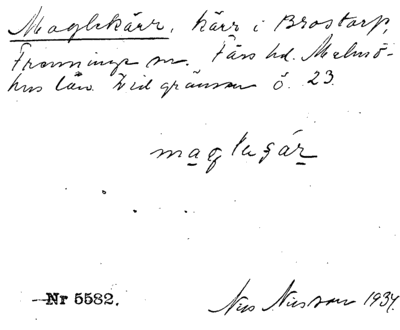 Maglekärr, kärr i Brostarp,
Frenninge sn. Färs hd. Malmö-
hus län. Vid gränsen ö. 23.
Nr 5582.
Nils Nilsson 1934.